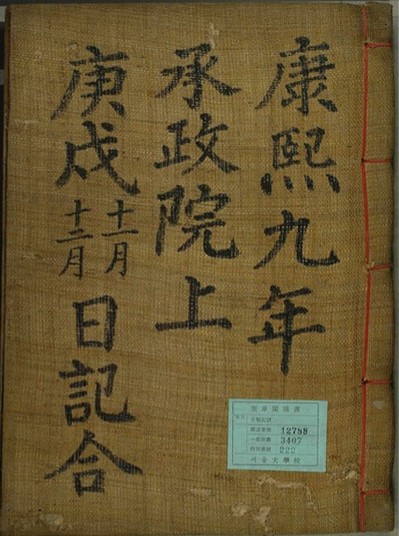 康熙九年
承政院上
庚戌十一月十二月日記合
奎章閣圖書
12788
3407
222
서울大學校